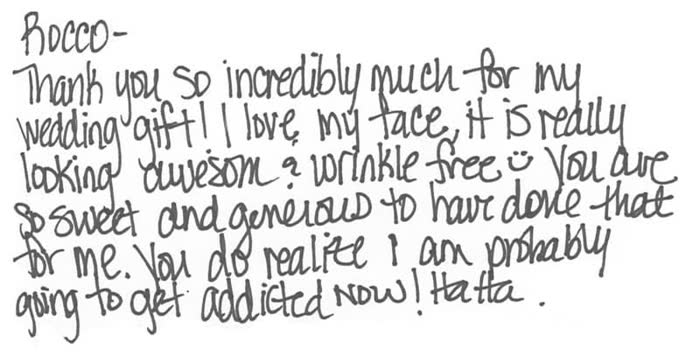 Rocco-
Thank you so incredibly much for my
wedding gift! I love my face, it is really
looking awesom & wrinkle free☺ You are
so sweet and generous to have done that
for me. You do realize I am probably
going to get addicted now! HaHa.